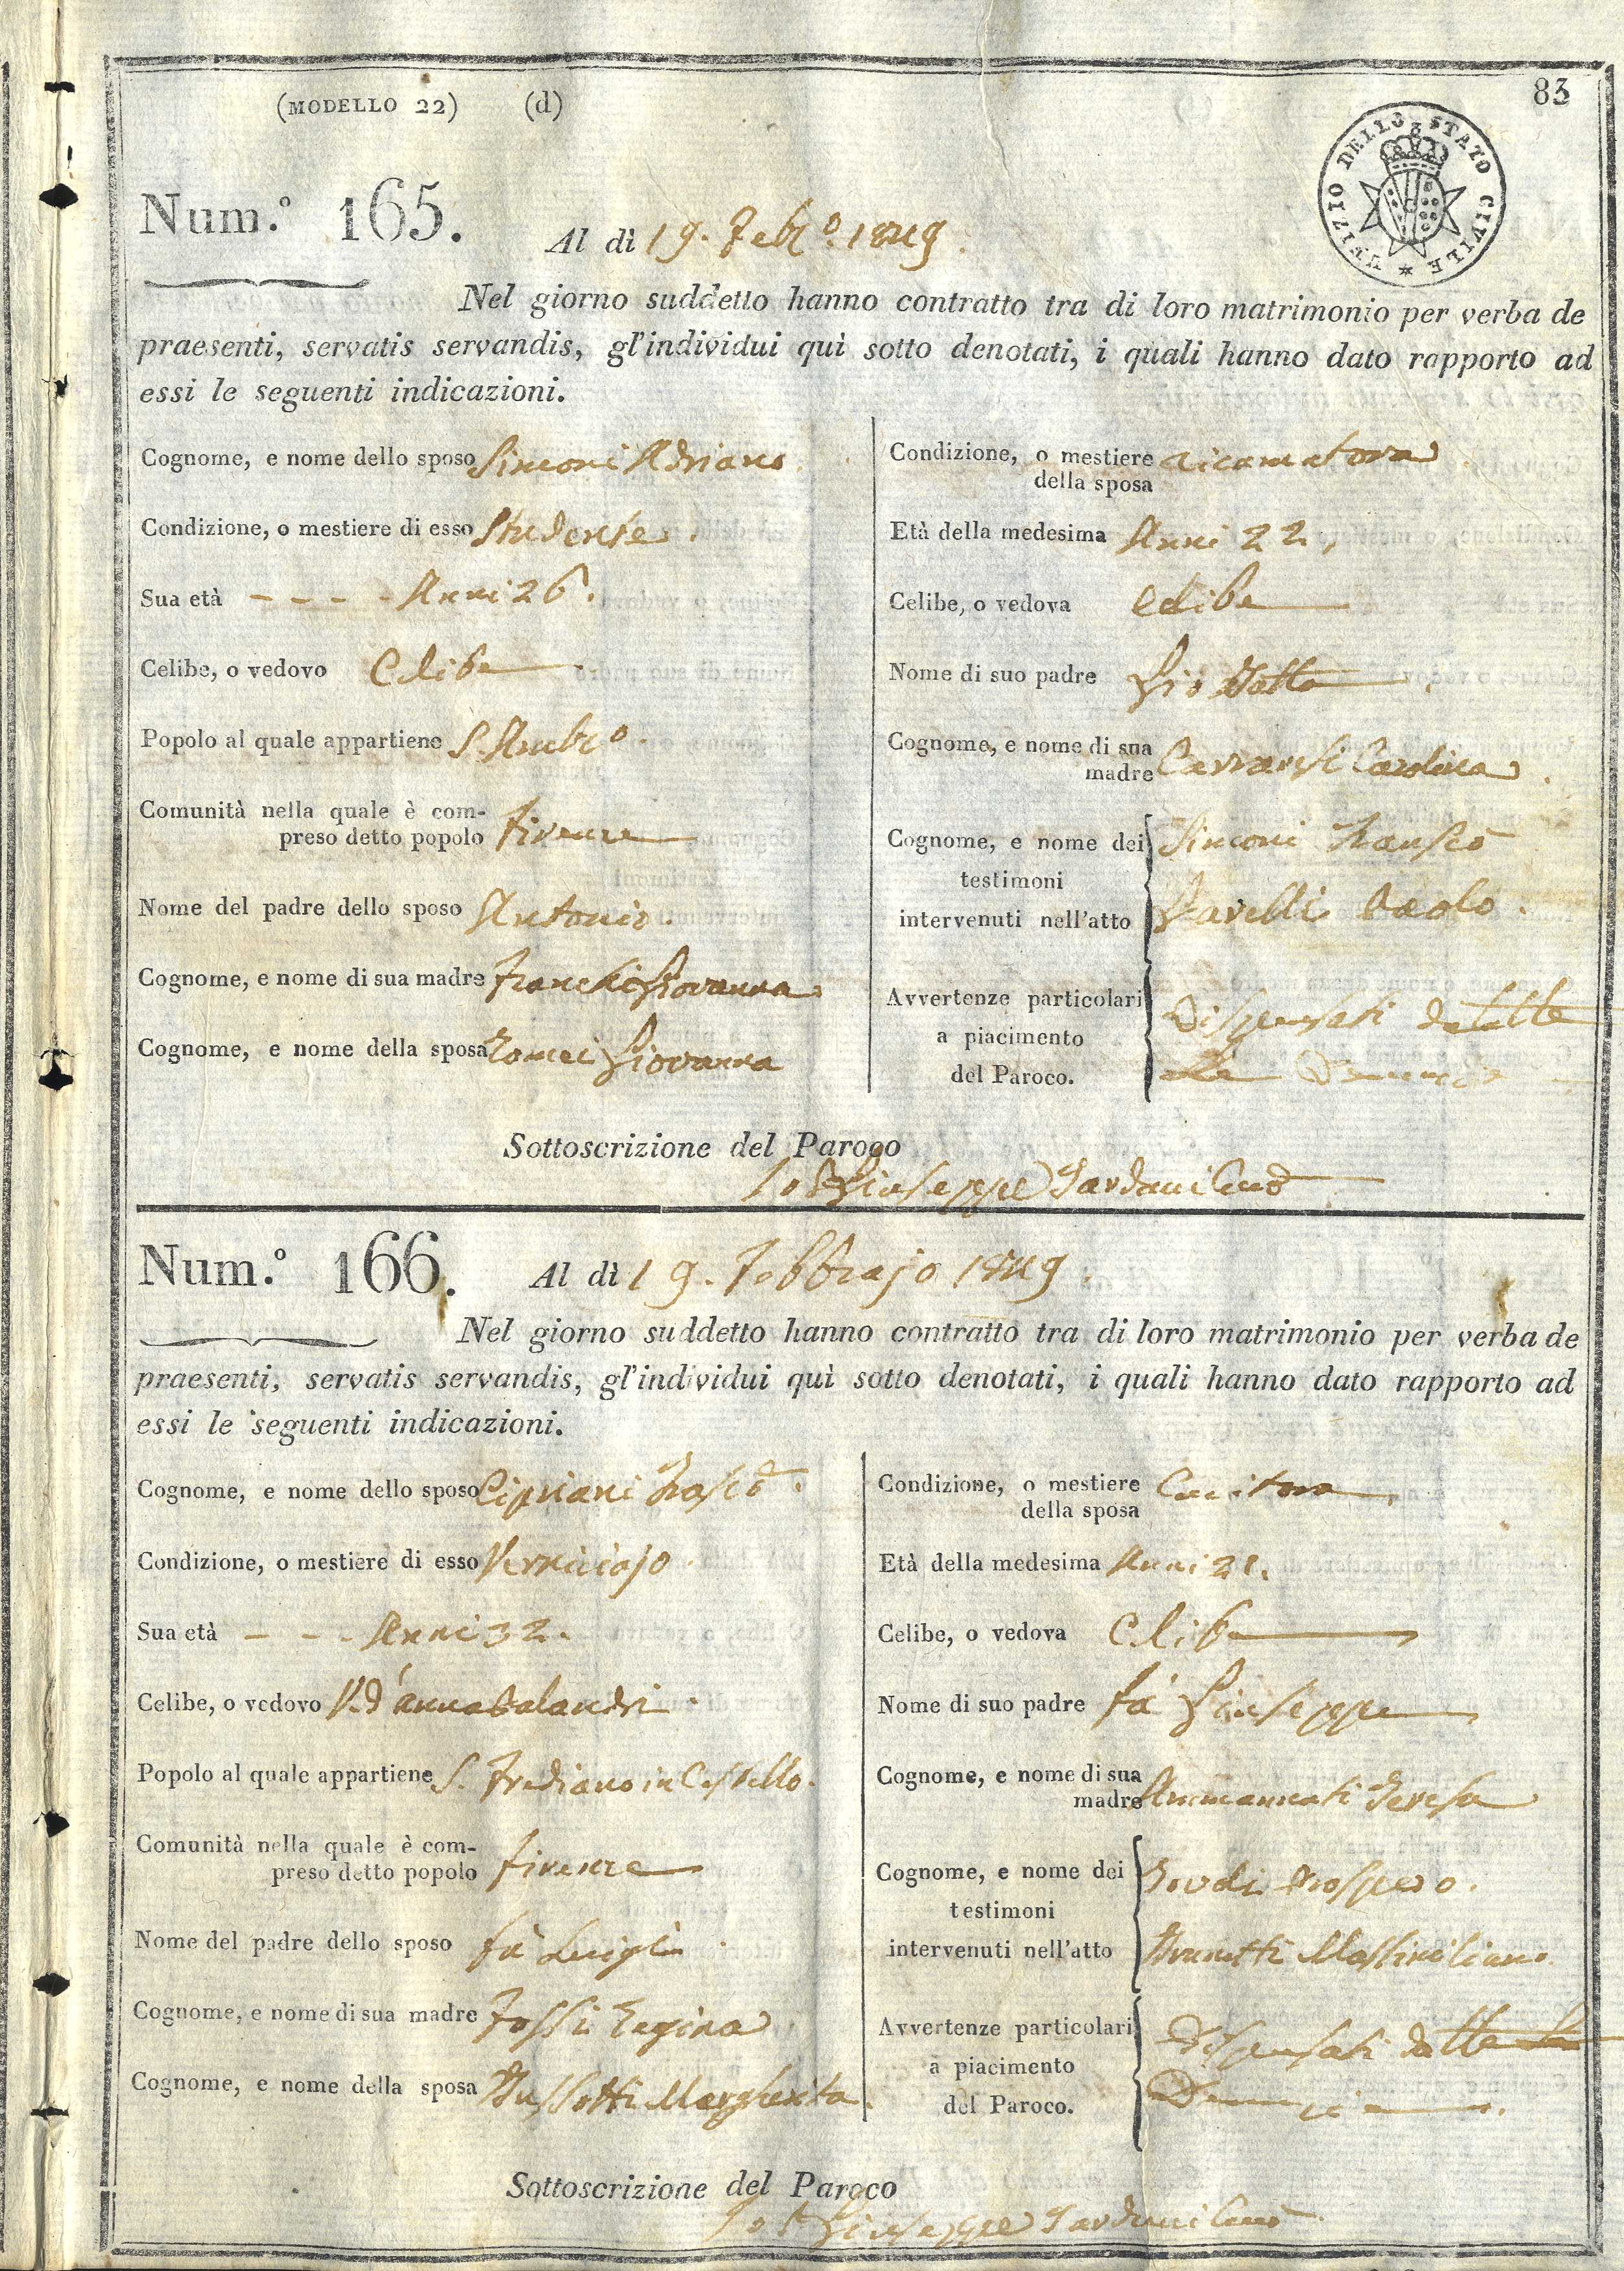 (MODELLO 22) (d)
83
UFIZIO DELLO STATO CIVILE
Num.° 165. Al dì 19. Feb.° 1849.
Nel giorno suddetto hanno contratto tra di loro matrimonio per verba de
praesenti, servatis servandis, gl'individui quì sotto denotati, i quali hanno dato rapporto ad
essi le seguenti indicazioni.
Cognome, e nome dello sposo Simoni Adriano
Condizione, o mestiere di esso Studente.
Sua età - - - - Anni 26.
Celibe, o vedovo Celibe
Popolo al quale appartiene S. Amb.°
Comunità nella quale è com-
preso detto popolo Firenze
Nome del padre dello sposo Antonio.
Cognome, e nome di sua madre Franchi Giovanna
Cognome, e nome della sposa Romei Giovanna
Condizione, o mestiere Ricamatora
della sposa
Età della medesima Anni 22.
Celibe, o vedova Celibe
Nome di suo padre Gio Batta
Cognome, e nome di sua
madre Carolina
Cognome, e nome dei Simoni Franc.o
testimoni
intervenuti nell'atto Paolo.
Avvertenze particolari Dispensati da tutte
a piacimento
del Paroco. Le Denunzie
Sottoscrizione del Paroco
Giuseppe
Num.° 166. Al dì 19. Febbrajo 1849.
Nel giorno suddetto hanno contratto tra di loro matrimonio per verba de
praesenti, servatis servandis, gl'individui quì sotto denotati, i quali hanno dato rapporto ad
essi le seguenti indicazioni.
Cognome, e nome dello sposo Cipriani
Condizione, o mestiere di esso Verniciajo
Sua età - - - Anni 32.
Celibe, o vedovo V. d'Anna
Popolo al quale appartiene S. Frediano in Cestello.
Comunità nella quale è com-
preso detto popolo Firenze
Nome del padre dello sposo fù Luigi
Cognome, e nome di sua madre Fossi Regina
Cognome, e nome della sposa Bussotti Margherita.
Condizione, o mestiere Cucitora
della sposa
Età della medesima Anni 21.
Celibe, o vedova Celibe
Nome di suo padre fù Giuseppe
Cognome, e nome di sua
madre Ammannati Teresa
Cognome, e nome dei Prospero.
testimoni
intervenuti nell'atto Brunetti Massimiliano
Avvertenze particolari Dispensati da tutte le
a piacimento
del Paroco. Denunzie
Sottoscrizione del Paroco
Giuseppe